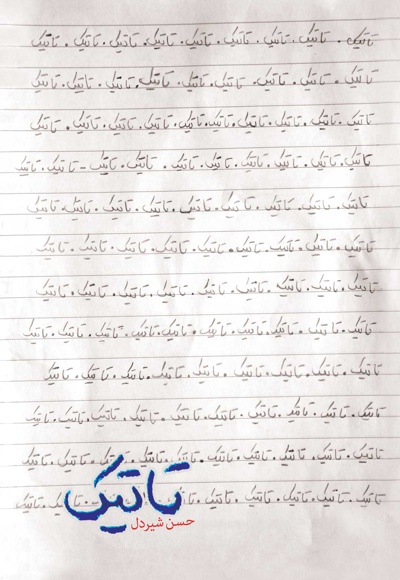 تاتیک . تاتیک . تاتیک . تاتیک . تاتیک . تاتیک . تاتیک . تاتیک . تاتیک
تاتیک . تاتیک . تاتیک . تاتیک . تاتیک . تاتیک . تاتیک . تاتیک . تاتیک
تاتیک . تاتیک . تاتیک . تاتیک . تاتیک . تاتیک . تاتیک . تاتیک . تاتیک . تاتیک
تاتیک . تاتیک . تاتیک . تاتیک . تاتیک . تاتیک . تاتیک . تاتیک - تاتیک . تاتیک
تاتیک . تاتیک . تاتیک . تاتیک . تاتیک . تاتیک . تاتیک . تاتیک . تاتیک
تاتیک . تاتیک . تاتیک . تاتیک . تاتیک . تاتیک . تاتیک . تاتیک . تاتیک
تاتیک . تاتیک . تاتیک . تاتیک . تاتیک . تاتیک . تاتیک . تاتیک . تاتیک
تاتیک . تاتیک . تاتیک . تاتیک . تاتیک . تاتیک . تاتیک . تاتیک . تاتیک . تاتیک
تاتیک . تاتیک . تاتیک . تاتیک . تاتیک . تاتیک . تاتیک . تاتیک . تاتیک
تاتیک . تاتیک . تاتیک . تاتیک . تاتیک . تاتیک . تاتیک . تاتیک . تاتیک . تاتیک
تاتیک . تاتیک . تاتیک . تاتیک . تاتیک . تاتیک . تاتیک . تاتیک . تاتیک . تاتیک
تاتیک . تاتیک . تاتیک . تاتیک . تاتیک . تاتیک
تاتیک
حسن شیردل